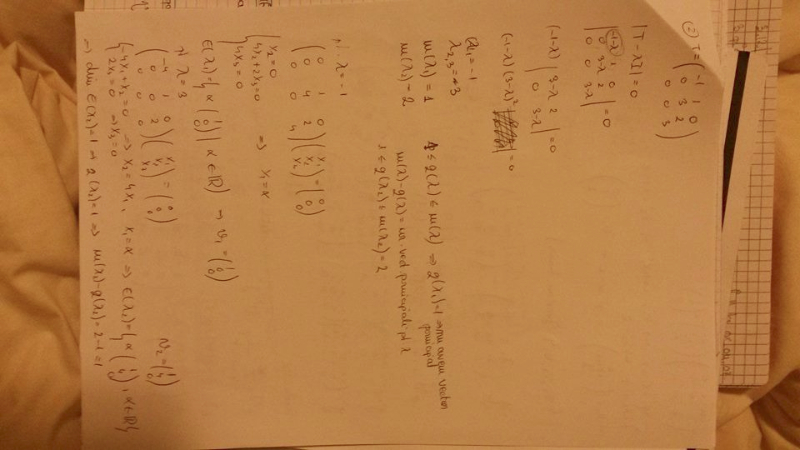 ② T = ( -1 1 0
0 3 2
0 0 3 )
|T - λI| = 0
| -1-λ 1 0
0 3-λ 2
0 0 3-λ | = 0
(-1-λ) | 3-λ 2
0 3-λ | = 0
(-1-λ)(3-λ)² = 0
λ₁ = -1
λ₂,₃ = +3
m(λ₁) = 1 1 ≤ g(λ) ≤ m(λ) ⇒ g(λ₁) = 1 ⇒ nu avem vectori principali
m(λ₂) = 2 m(λ) - g(λ) = nr. vect principali pt λ
1 ≤ g(λ₂) ≤ m(λ₂) = 2
pt. λ = -1
( 0 1 0
0 4 2
0 0 4 ) ( x₁ x₂ x₃ ) = ( 0 0 0 )
{ x₂ = 0
4x₂ + 2x₃ = 0 ⇒ x₁ = α
4x₃ = 0
E(λ₁) = { α ( 1 0 0 ) | α ∈ ℝ } → v₁ = ( 1 0 0 )
pt λ = 3
( -4 1 0
0 0 2
0 0 0 ) ( x₁ x₂ x₃ ) = ( 0 0 0 ) v₂ = ( 1 4 0 )
{ -4x₁ + x₂ = 0 ⇒ x₂ = 4x₁, x₁ = α ⇒ E(λ₂) = { α ( 1 4 0 ), α ∈ ℝ }
2x₃ = 0 ⇒ x₃ = 0
⇒ dim E(λ₂) = 1 ⇒ g(λ₂) = 1 ⇒ m(λ₂) - g(λ₂) = 2 - 1 = 1